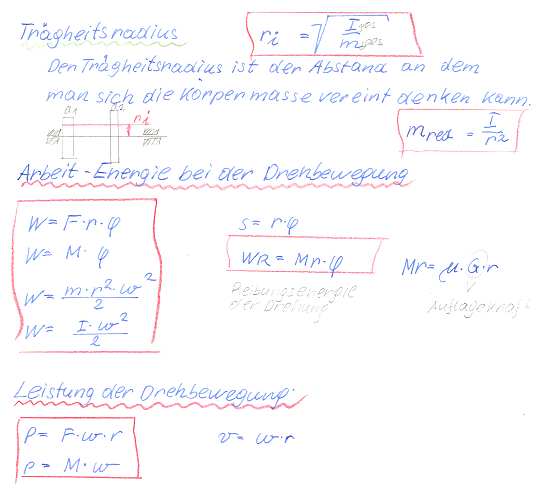 Trägheitsradius
ri = √ Iges / mges
Der Trägheitsradius ist der Abstand an dem
man sich die Körpermasse vereint denken kann.
ri
mred = I / r²
Arbeit - Energie bei der Drehbewegung
W = F · r · φ
s = r · φ
W = M · φ
WR = Mr · φ
Mr = μ · G · r
Reibungsenergie
der Drehung
Auflagekraft
W = m · r² · w² / 2
W = I · w² / 2
Leistung der Drehbewegung:
P = F · w · r
v = w · r
P = M · w